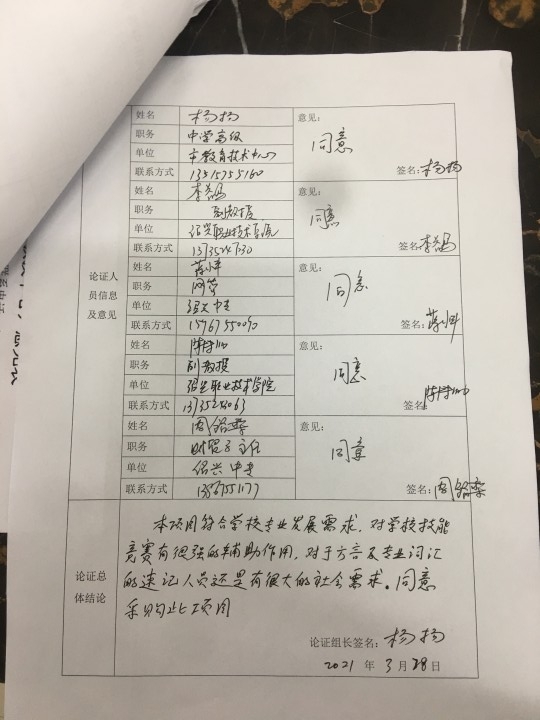 姓名 杨扬 意见:
职务 中学高级 同意
单位 市教育技术中心
联系方式 13515755160 签名:杨扬
姓名 意见:
职务 副教授 同意
单位 绍兴职业技术学院
联系方式 签名:
论证人
员信息
及意见
姓名 意见:
职务 同意
单位 绍兴中专
联系方式 15967550090 签名:
姓名 意见:
职务 副教授 同意
单位 绍兴职业技术学院
联系方式 签名:
姓名 意见:
职务 财贸系主任 同意
单位 绍兴中专
联系方式 签名:
论证总
体结论
本项目符合学校专业发展需求,对学校技能
竞赛有很强的辅助作用,对于方言及专业词汇
的速记人员还是有很大的社会需求。同意
采购此项目
论证组长签名:杨扬
2021 年 3 月 28 日